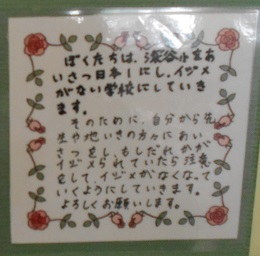 ぼくたちは、深谷小をあ
いさつ日本一にし、イジメ
がない学校にしていき
ます。
そのために、自分から先
生や地いきの方々にあい
さつをし、もしだれかが
イジメられていたら注意
をして、イジメがなくなって
いくようにしていきます。
よろしくお願いします。